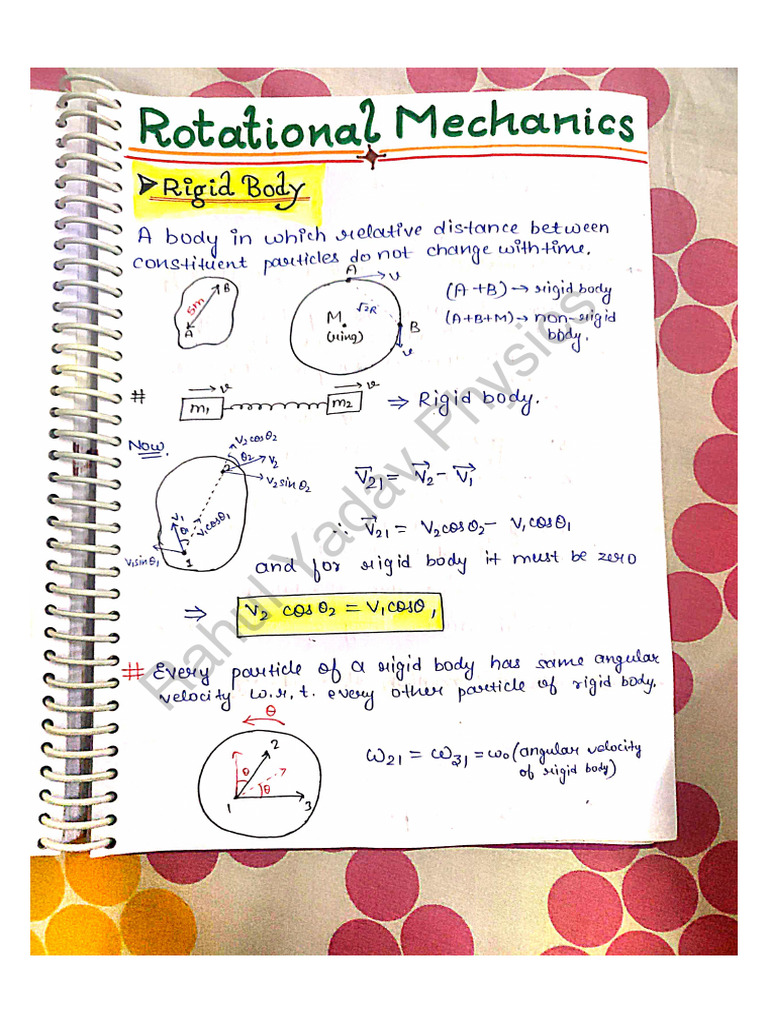 Rotational Mechanics
➤ Rigid Body
A body in which relative distance between
constituent particles do not change with time.
A B 5m
A v √2R M. (ring) B v
(A+B) → rigid body
(A+B+M) → non-rigid
body.
# m1 v m2 v ⇒ Rigid body.
Now
V2 cosθ2
θ2 V2
V2 sinθ2
2
V1 θ1 V1cosθ1
V1sinθ1 1
V⃗21 = V⃗2 - V⃗1
∴ V⃗21 = V2cosθ2 - V1cosθ1
and for rigid body it must be zero
⇒ V2 cosθ2 = V1cosθ1
# Every particle of a rigid body has same angular
velocity w.r.t. every other particle of rigid body.
θ
2
θ θ
1 3
ω21 = ω31 = ω0 (angular velocity
of rigid body)
Rahul Yadav Physics